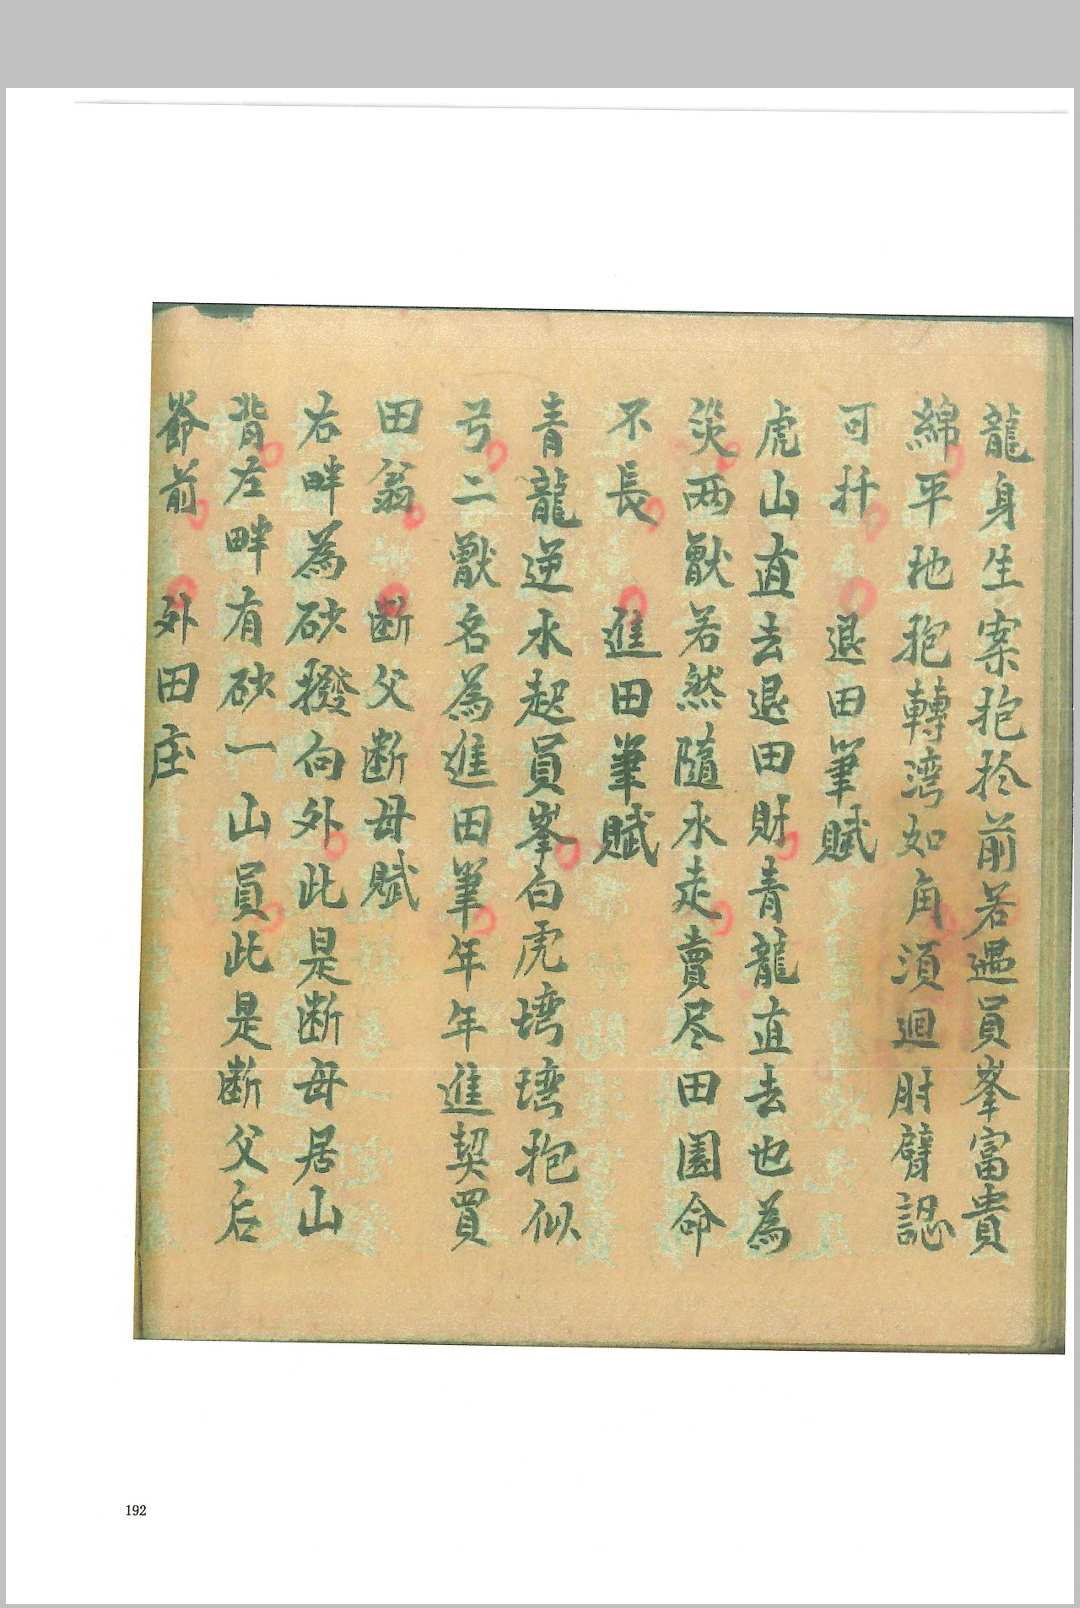 龍身生案抱扵前若遇員峯富貴
綿平地抱轉湾如角須迴肘臂認
可扦　退田筆賦
虎山直去退田財青龍直去也為
災两獸若然隨水走賣尽田園命
不長　進田筆賦
青龍逆水起員峯白虎塆塆抱似
弓二獸名為進田筆年年進契買
田翁　断父断母賦
右畔為砂撥向外此是断母居山
背左畔有砂一山員此是断父后
爺前　外田庄
192